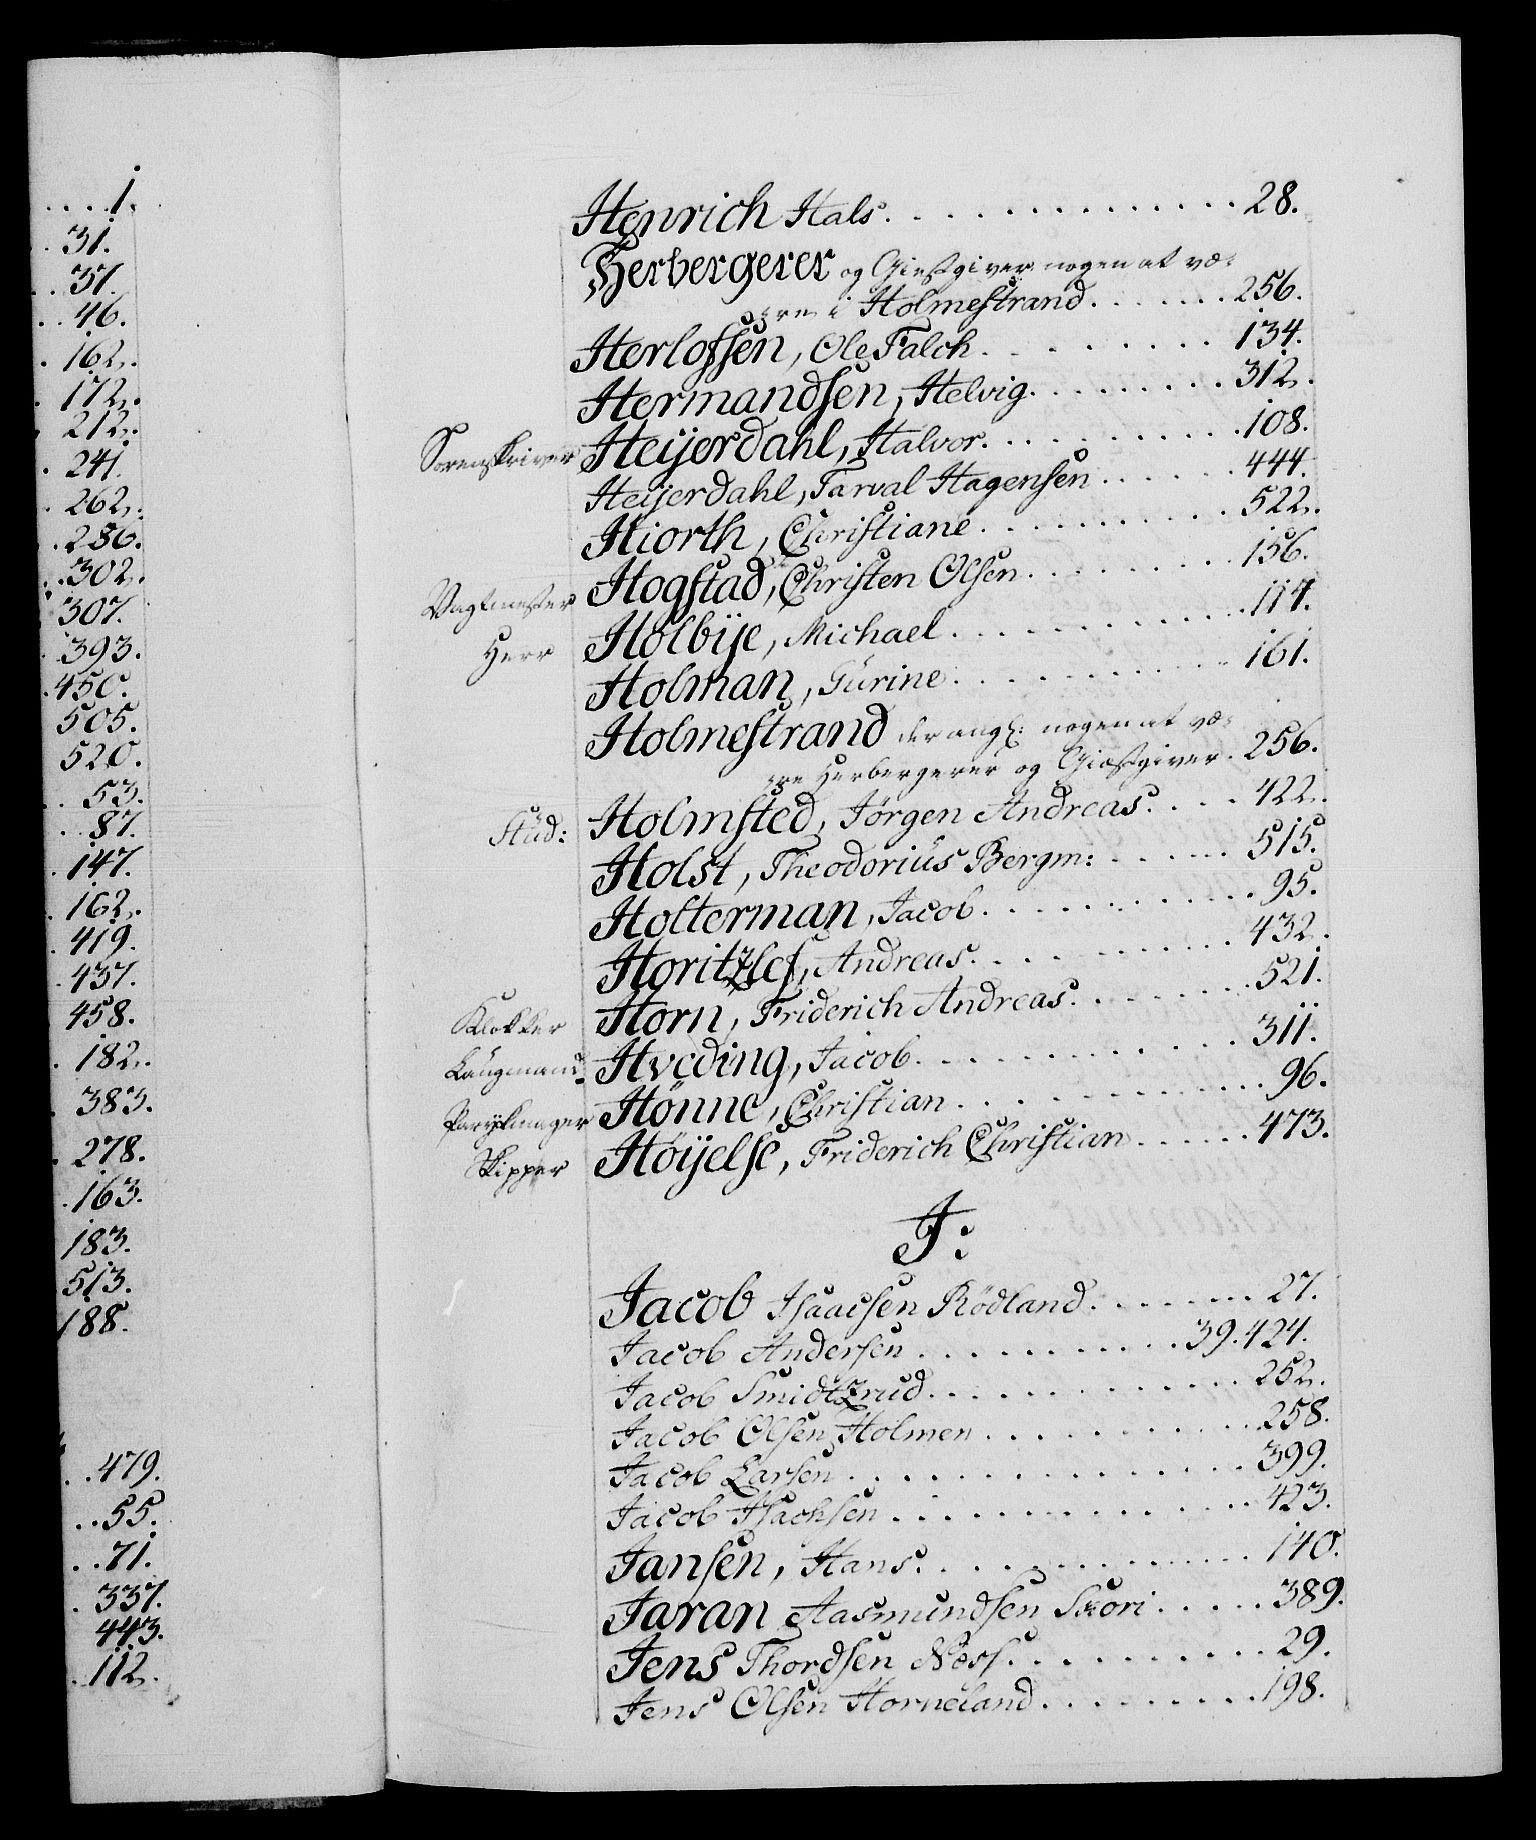 1.
31.
37.
46.
162.
172.
212.
241.
262.
286.
302.
307.
393.
450.
505.
520.
53.
87.
147.
162.
419.
437.
458.
182.
383.
278.
163.
183.
513.
188.
479.
55.
71.
337.
443.
112.
Henrich Hals. . . . . . . . . . . . . . 28.
Herbergerer og Giestgiver nogen at væ-
re i Holmestrand. . . . . . . 256.
Herlofsen, Ole Falch. . . . . . . . . . 134.
Hermandsen, Helvig. . . . . . . . . 312.
Sorenskriver Heijerdahl, Halvor. . . . . . . . . . . 108.
Heijerdahl, Tarval Hagensen . . . . . . 444.
Hiorth, Christiane . . . . . . . . . . . 522.
Vagtmester Hogstad, Christen Olsen . . . . . . . . . 156.
Herr Holbije, Michael . . . . . . . . . . . . 114.
Holman, Gurine . . . . . . . . . . . . 161.
Holmestrand der angl: nogen at væ-
re Herbergerer og Giestgiver . 256.
Stud: Holmsted, Jørgen Andreas. . . . 422.
Holst, Theodorius Bergm: . . . . . . 515.
Holterman, Jacob . . . . . . . . . . . 95.
Horitzlef, Andreas. . . . . . . . . . . 432.
Klokker Horn, Friderich Andreas. . . . . . . . 521.
Laugmand. Hveding, Jacob . . . . . . . . . . . . 311.
Parykmager Hönne, Christian . . . . . . . . . . . 96.
Skipper Höijelse, Friderich Christian . . . . . . 473.
J:
Jacob Isaacsen Rödland . . . . . . . . 27.
Jacob Andersen . . . . . . . . . . 39. 424.
Jacob Smidtzrud . . . . . . . . . . . . 252.
Jacob Olsen Holmen . . . . . . . . . . 258.
Jacob Larsen . . . . . . . . . . . . . . 399.
Jacob Isachsen . . . . . . . . . . . . . 423.
Jansen, Hans. . . . . . . . . . . . . . 140.
Jaran Aasmundsen Skori . . . . . 389.
Jens Thordsen Næss . . . . . . . . . . 29.
Jens Olsen Horneland . . . . . . . . . 198.